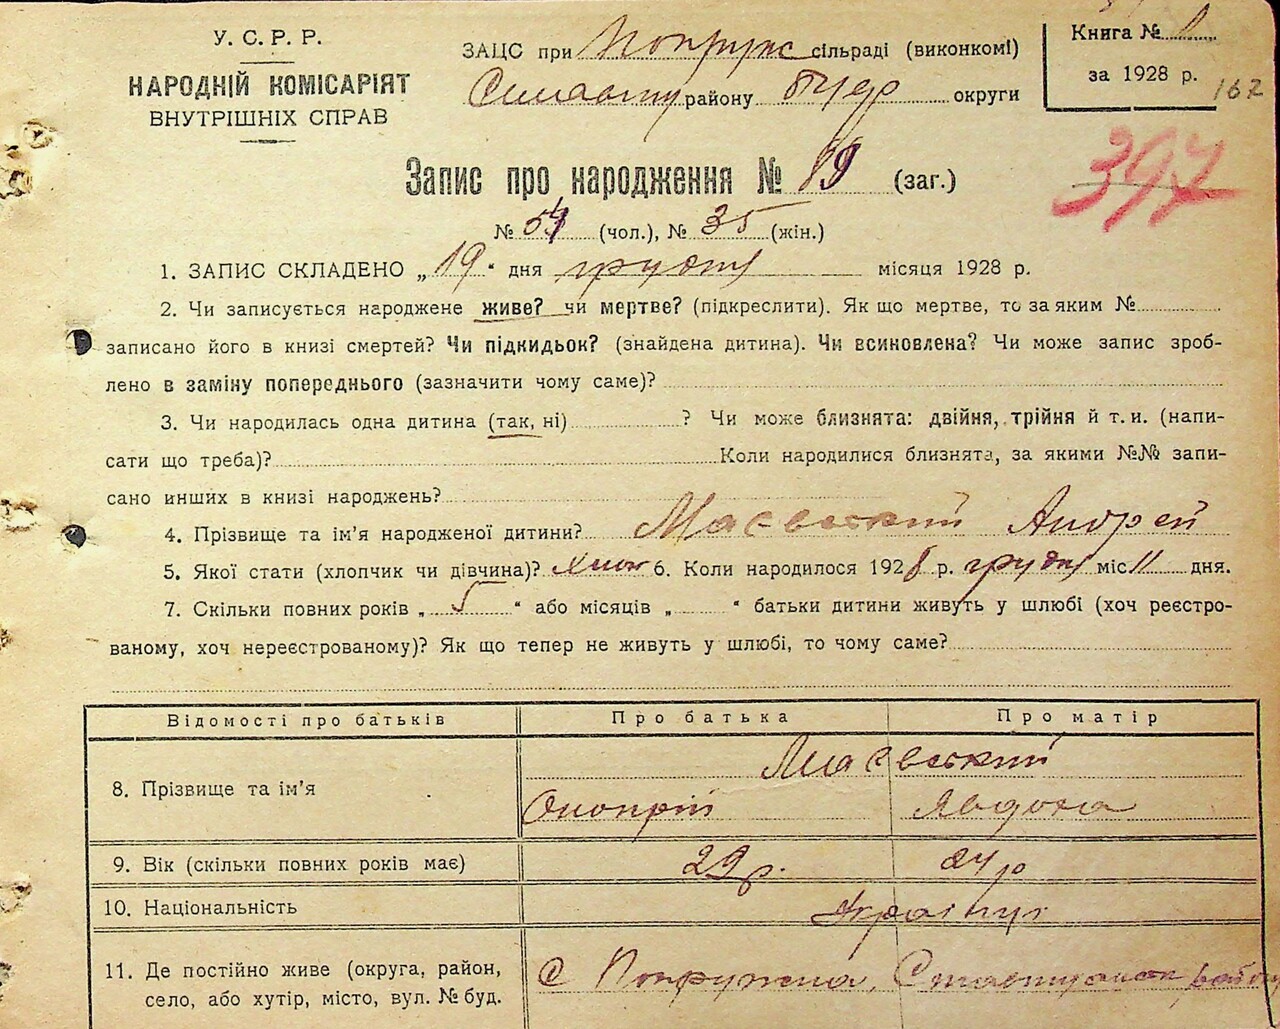 У. С. Р. Р.
НАРОДНІЙ КОМІСАРІЯТ
ВНУТРІШНІХ СПРАВ
ЗАЦС при сільраді (виконкомі)
району округи
Книга № 1
за 1928 р.
162
397
Запис про народження № 89 (заг.)
№ 54 (чол.), № 35 (жін.)
1. ЗАПИС СКЛАДЕНО „19“ дня грудня місяця 1928 р.
2. Чи записується народжене живе? чи мертве? (підкреслити). Як що мертве, то за яким №
записано його в книзі смертей? Чи підкидьок? (знайдена дитина). Чи всиновлена? Чи може запис зроб-
лено в заміну попереднього (зазначити чому саме)?
3. Чи народилась одна дитина (так, ні) ? Чи може близнята: двійня, трійня й т. и. (напи-
сати що треба)? Коли народилися близнята, за якими №№ запи-
сано инших в книзі народжень?
4. Прізвище та ім'я народженої дитини? Маєвський Андрей
5. Якої стати (хлопчик чи дівчина)? 6. Коли народилося 1928 р. грудня міс 11 дня.
7. Скільки повних років „ 5 “ або місяців „ “ батьки дитини живуть у шлюбі (хоч реєстро-
ваному, хоч нереєстрованому)? Як що тепер не живуть у шлюбі, то чому саме?
Відомості про батьків Про батька Про матір
8. Прізвище та ім'я Маєвський
Онопрій Явдоха
9. Вік (скільки повних років має) 29 р. 24 р
10. Національність Українці
11. Де постійно живе (округа, район,
село, або хутір, місто, вул. № буд.
С Попружна,